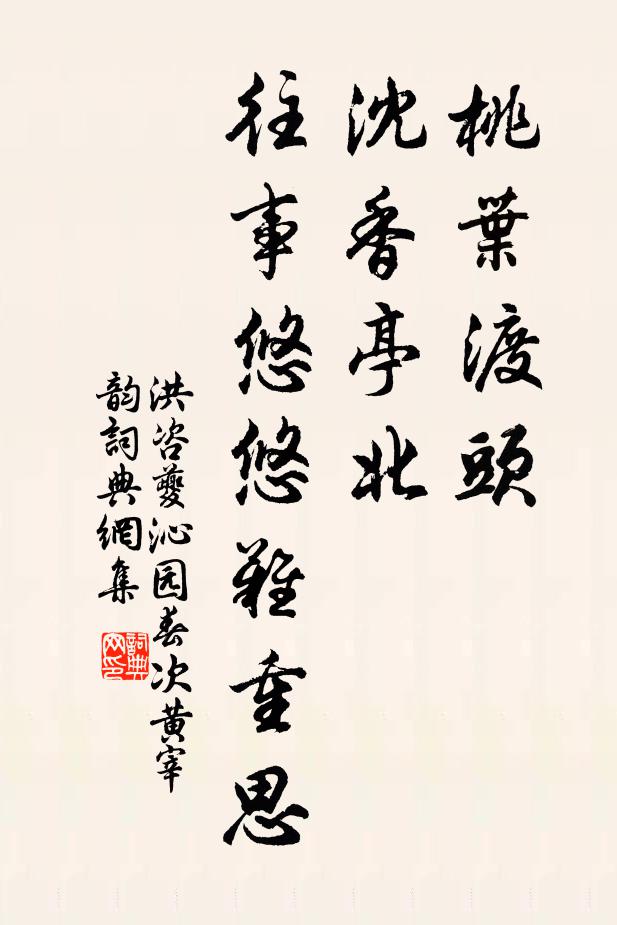 桃葉渡頭
沈香亭北
往事悠悠難重思
洪咨夔沁园春次黄宰
韵詞典網集
詞典
网印